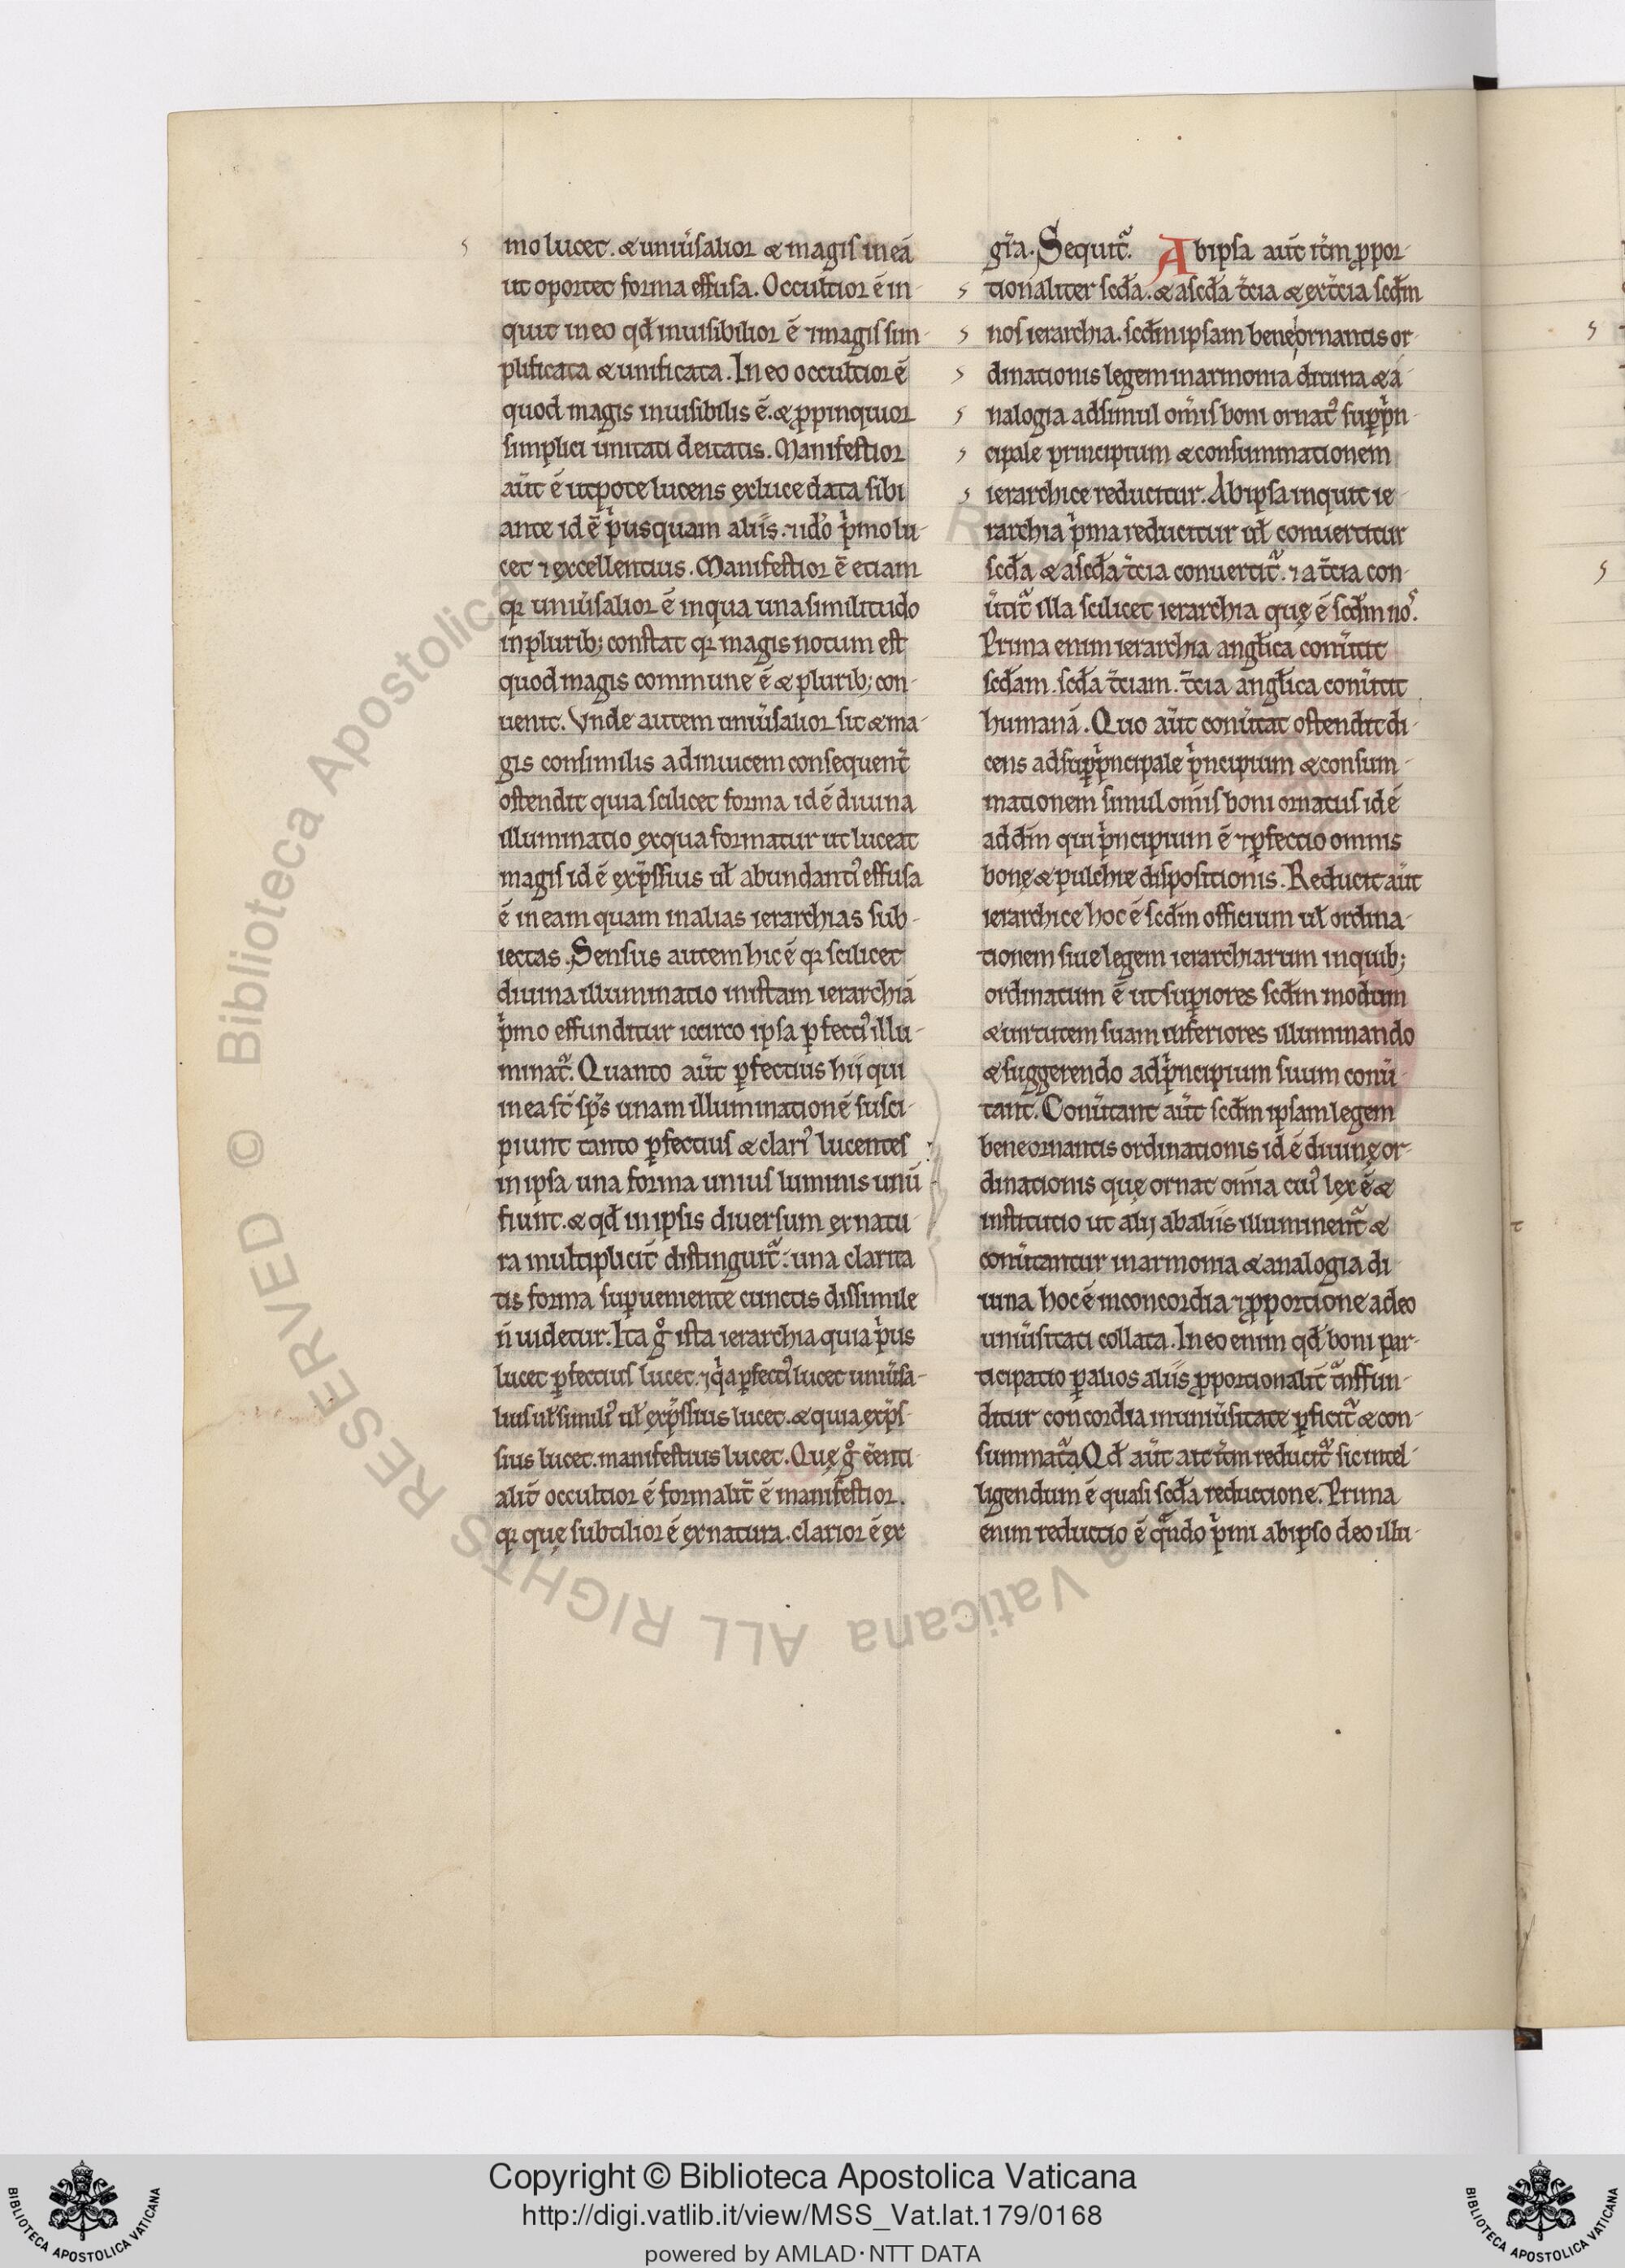 mo lucet. & uniu̾salior & magis in eā
ut oportet forma effusa. Occultior ē in-
quit in eo qđ inuisibilior ē ⁊ magis sim-
plificata & unificata. In eo occultior ē
quod magis inuisibilis ē. & ꝓpinquior
simplici unitati deitatis. Manifestior
aūt ē utpote lucens ex luce data sibi
ante id ē p̾usquam aliis. ⁊ idō p̾mo lu-
cet ⁊ excellentius. Manifestior ē etiam
qꝛ uniu̾salior ē in qua una similitudo
in plurib; constat qꝛ magis notum est
quod magis commune ē & plurib; con-
uenit. Vnde autem uniu̾salior sit & ma-
gis consimilis ad inuicem consequent̾
ostendit quia scilicet forma id ē diuina
illuminatio ex qua formatur ut luceat
magis id ē exp̾ssius ul̄ abundantiꝰ effusa
ē in eam quam in alias ierarchias sub-
iectas. Sensus autem hic ē qꝛ scilicet
diuina illuminatio in istam ierarchiā
p̾mo effunditur iccirco ipsa ꝑfectiꝰ illu-
minat̾. Quanto aūt ꝑfectius hij qui
in ea st̄ sp̄s unam illuminationē susci-
piunt tanto ꝑfectius & clariꝰ lucentes
in ipsa una forma unius luminis unū
fiunt. & qđ in ipsis diuersum ex natu-
ra multiplicit̾ distinguit̾: una clarita
tis forma suꝑueniente cunctis dissimile
n̄ uidetur. Ita g̊ ista ierarchia quia p̾us
lucet ꝑfectius lucet. ⁊ q̾a ꝑfectiꝰ lucet uniu̾sa-
lius ul̄ similiꝰ ul̄ exp̾ssius lucet. & quia exp̾s-
sius lucet. manifestius lucet. Quę g̊ eēnti
alit̾ occultior ē formalit̾ ē manifestior.
qꝛ quę subtilior ē ex natura. clarior ē ex
gr̄a. Sequit̾. Ab ipsa aūt it̾m ꝓpor-
tionaliter scđa. & a scđa t̾cia & ex t̾cia scđm
nos ierarchia. scđm ipsam bene ornantis or-
dinationis legem in armonia diuina & a
nalogia ad simul om̄is boni ornatꝰ suꝑp̾n-
cipale principium & consummationem
ierarchice reducitur. Ab ipsa inquit ie
rarchia p̾ma reducitur ul̄ conuertitur
scđa & a scđa t̾cia conuertit̾. ⁊ a t̾cia con-
u̾tit̾ illa scilicet ierarchia quę ē scđm nos.
Prima enim ierarchia angl̄ica conu̾tit
scđam. scđa t̾ciam. t̾cia angl̄ica conu̾tit
humanā. Quo aūt conu̾tat ostendit di-
cens ad suꝑp̾ncipale p̾ncipium & consum-
mationem simul om̄is boni ornatus id ē
ad dm̄ qui p̾ncipium ē ⁊ ꝑfectio omnis
bonę & pulchre dispositionis. Reducit aūt
ierarchice hoc ē scđm officium ul̄ ordina-
tionem siue legem ierarchiarum in quib;
ordinatum ē ut suꝑiores scđm modum
& uirtutem suam inferiores illuminando
& suggerendo ad p̾ncipium suum conu̾
tant. Conu̾tant aūt scđm ipsam legem
bene ornantis ordinationis id ē diuinę or-
dinationis quę ornat om̄ia cuiꝰ lex ē &
institutio ut alij ab aliis illuminent̾ &
conu̾tantur in armonia & analogia di
uina hoc ē in concordia ⁊ ꝓportione a deo
uniu̾sitati collata. In eo enim qđ boni par-
ticipatio ꝑ alios aliis ꝓportionalit̾ t̾nsffun-
ditur concordia in uniu̾sitate ꝑficit̾ & con-
summat̾. Qđ aūt ait it̾m reducit̾ sic intel-
ligendum ē quasi scđa reductione. Prima
enim reductio ē qn̄do p̾mi ab ipso deo illu-
Copyright © Biblioteca Apostolica Vaticana
http://digi.vatlib.it/view/MSS_Vat.lat.179/0168
powered by AMLAD·NTT DATA